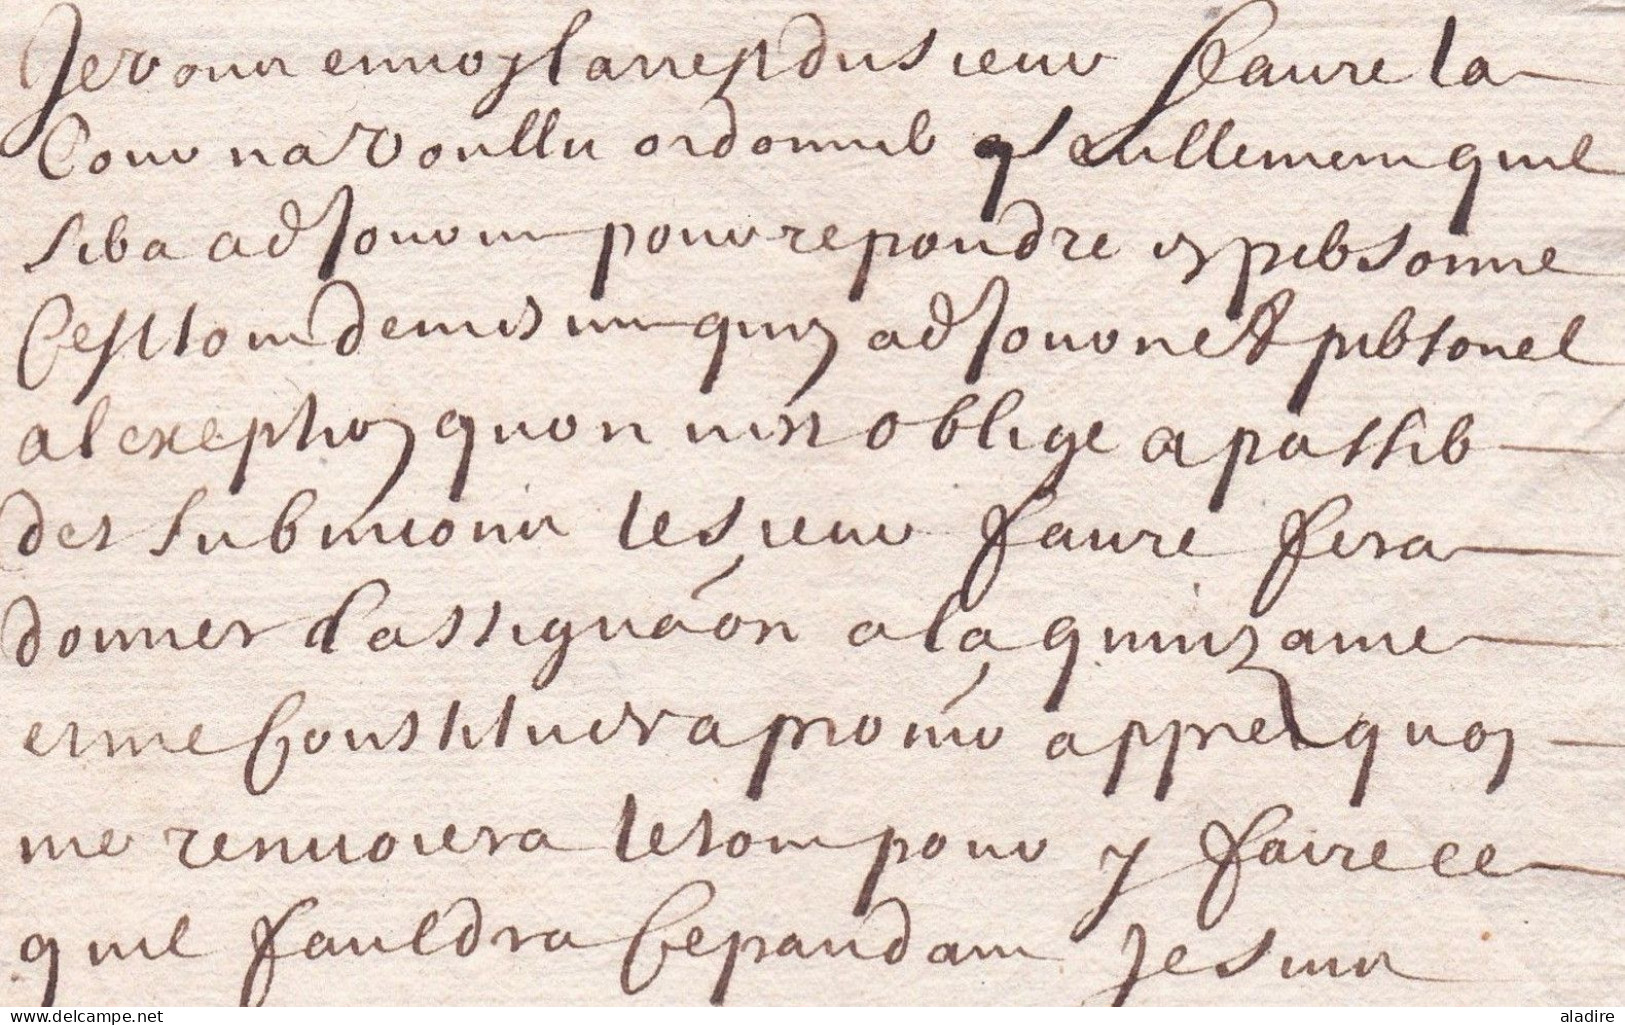 Je vous envoy larrest du sieur Faure la
Cour na voullu ordonner q seullement quil
sera adjourné pour repondre en personne
Cest tout de mesme quun adjournet personel
a lexeption quon nest oblige a passer
des submions le sieur Faure fera
donner lassignaon a la quinzaine
et me Constituera procur appres quoy
me renvoiera le tout pour y faire ce
quil fauldra Cependant Je suis
aladire